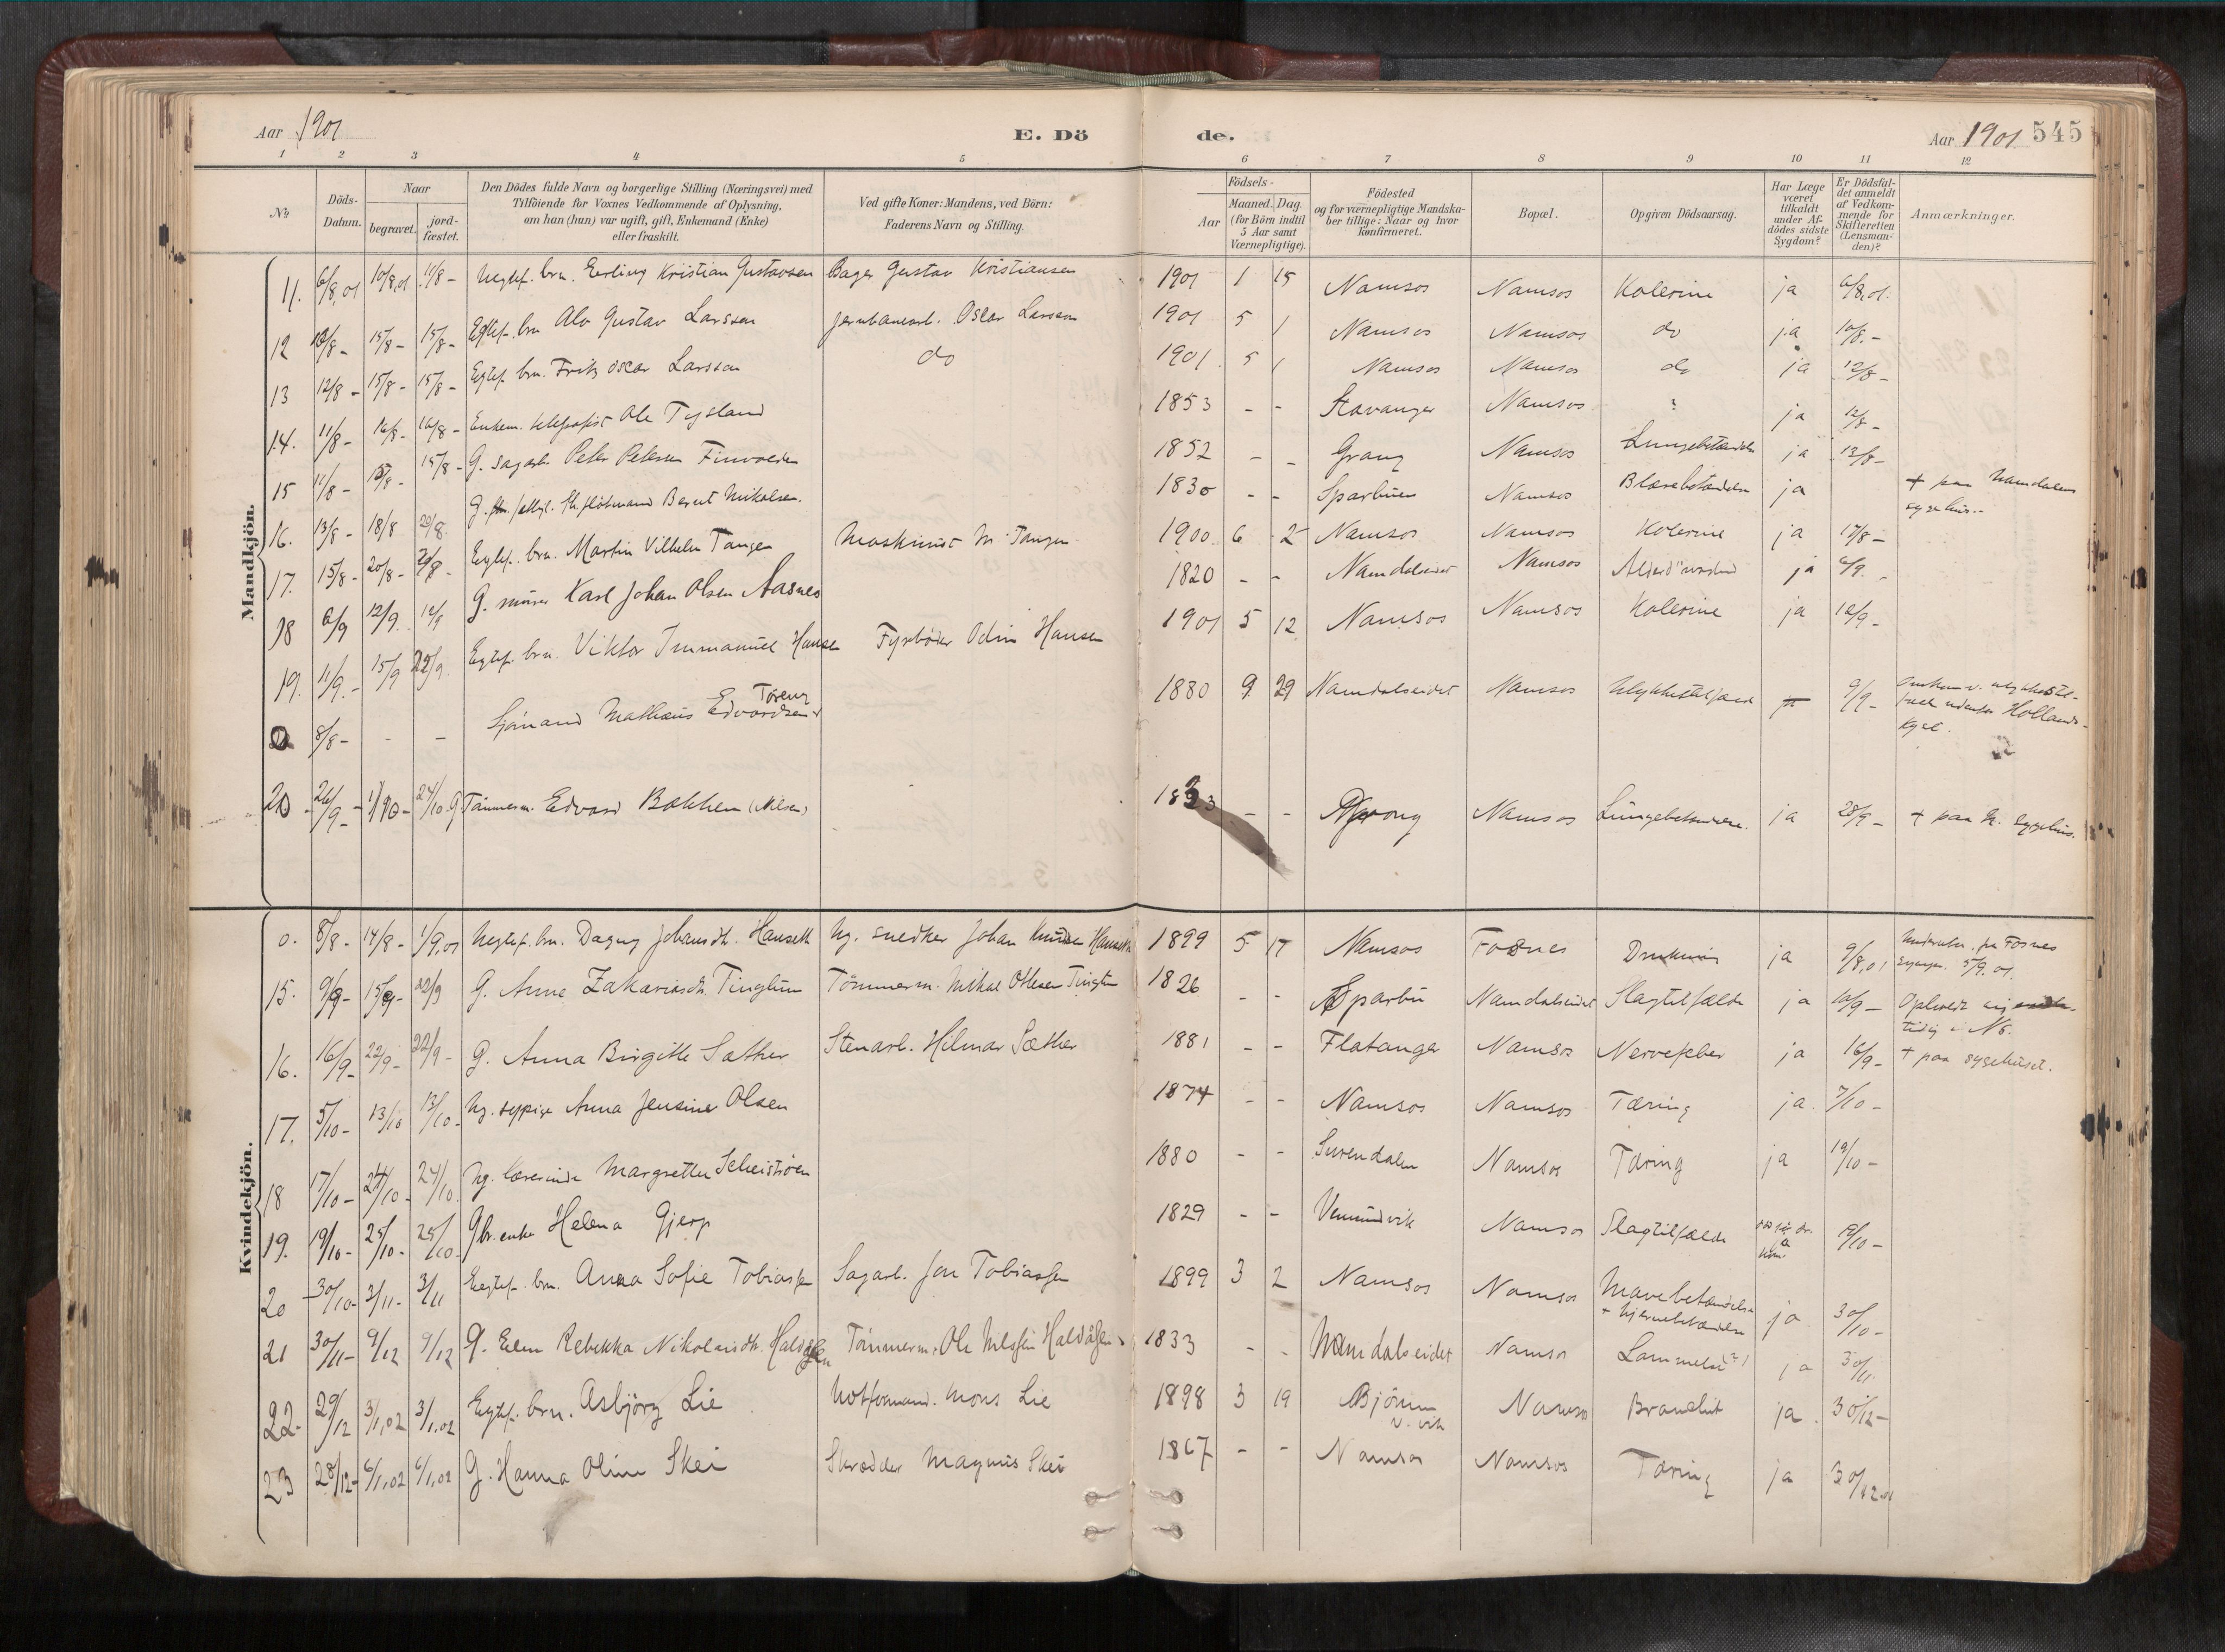 Aar 1901
E. Dö
de.
Aar 1901 545
1 2 3 4 5 6 7 8 9 10 11 12
No
Döds-Datum.
Naar
begravet.
jord-fæstet.
Den Dödes fulde Navn og borgerlige Stilling (Næringsvei) med
Tilföiende for Voxnes Vedkommende af Oplysning,
om han (hun) var ugift, gift, Enkemand (Enke)
eller fraskilt.
Ved gifte Koner: Mandens, ved Börn:
Faderens Navn og Stilling.
Födsels-
Aar
Maaned. Dag.
(for Börn indtil
5 Aar samt
Værnepligtige).
Födested
og for værnepligtige Mandska-
ber tillige: Naar og hvor
Konfirmeret.
Bopæl.
Opgiven Dödsaarsag.
Har Læge
været
tilkaldt
under Af-
dödes sidste
Sygdom?
Er Dödsfal-
det anmeldt
af Vedkom-
mende for
Skifteretten
(Lensman-
den)?
Anmærkninger.
Mandkjön.
11. 6/8,01 10/8,01 11/8- Uegtef. brn. Erling Kristian Gustavsen Bager Gustav Kristiansen 1901 1 15 Namsos Namsos Kolerine ja 6/8,01.
12 10/8- 15/8- 15/8- Egtef. brn Alv Gustav Larssen Jernbanearb. Oscar Larssen 1901 5 1 Namsos Namsos do ja 10/8.-
13 12/8- 15/8- 15/8- Egtef. brn. Fritz Oscar Larssen do 1901. 5 1 Namsos Namsos do ja 12/8-
14. 11/8- 16/8- 16/8- Enkem. telegrafist Ole Tysland 1853 - - Stavanger Namsos ? ja 12/8-
15 11/8- 15/8- 15/8- G. sagarb. Peter Petersen Finvolden 1852 - - Grong Namsos Lungebetændelse ja 13/8-
16. 13/8- 18/8 20/8. G. flötmand Berut Nikolsen. 1830 - - Sparbuen Namsos Blærebetændelse ja + paa Namdalens
sygehus.-
17. 15/8- 20/8- Egtef. brn. Martin Vilhelm Tangen Maskinist M. Tangen 1900 6 2 Namsos Namsos Kolerine ja 17/8-
18 6/9 12/9. 12/9 G. murer Karl Johan Olsen Aasnes 1820 - - Namdalseidet Namsos ja 6/9.-
19. 11/9.- 15/9 22/9. Egtef. brn. Viktor Immanuel Hansen Fyrböder Odin Hansen 1901 5 12 Namsos Namsos Kolerine ja 12/9-
0 8/8- - - Sjömand Mathæus Edvardsen Töreng 1880 9. 29 Namdalseidet Namsos Ulykkestilfæld 9/9- Omkom v. ulykkestil-
fæld udenfor Hollands-
kyst.
20 26/9- 1/10- 24/10. G. Tømmerm. Edvard Bakken (Nilsen) Grong Namsos Lungebetændelse. ja 28/9- + paa N. sygehus.
Kvindekjön.
0. 8/8- 14/8- 1/9,01 Uegtef. brn. Dagny Johansdtr. Hanseth Ug. snedker Johan Knudsen Hanseth 1899 5 17 Namsos Fosnes ja 9/8,01 Fosnes
5/9.01.
15. 9/9- 15/9- 22/9 G. Anne Zakariasdtr. Tinglum Tömmerm. Mikal Ottesen Tinglum 1826 - - Sparbu Namdalseidet Slagtilfælde ja 10/9- Opholdt sig
tidig i Ns.
16. 16/9- 22/9- 22/9- G. Anna Birgitte Sæther Stenarb. Hilmar Sæther 1881 - - Flatanger Namsos Nervefeber ja 16/9- + paa sygehuset.
17. 5/10- 13/10 13/10- Ug. sypige Anna Jensine Olsen 1874 - - Namsos Namsos Tæring ja. 7/10-
18 17/10- 24/10- 24/10. Ug. lærerinde Margrethe Scheiströen 1880 - - Surendalen Namsos Tæring ja 19/10-
19. 19/10- 25/10- 25/10- Gbr. enke Helena Gjerp 1829 - - Vemundvik Namsos Slagtilfælde 19/10-
20 30/10- 3/11- 3/11 Egtef. brn. Anna Sofie Tobiassen Sagarb. Jon Tobiassen 1899 3 2 Namsos Namsos Mavebetændelse
+ hjernebetændelse ja 30/10-
21 30/11- 9/12 9/12 G. Elen Rebekka Nikolaisdtr. Haldåsen Tömmerm. Ole Nilssen Haldåsen 1833 - - Namdalseidet Namsos Lammelse (?) ja 30/11
22- 29/12 3/1,02 3/1.02 Egtef. brn. Asbjörg Lie Notformand. Mons Lie 1898 3 19 Björum
V. vik Namsos Brandsår ja. 30/12-
23 28/12- 6/1,02 6/1,02 G. Hanna Oline Skei Skrædder Magnus Skei 1867 - - Namsos Namsos Tæring ja 30/12.01